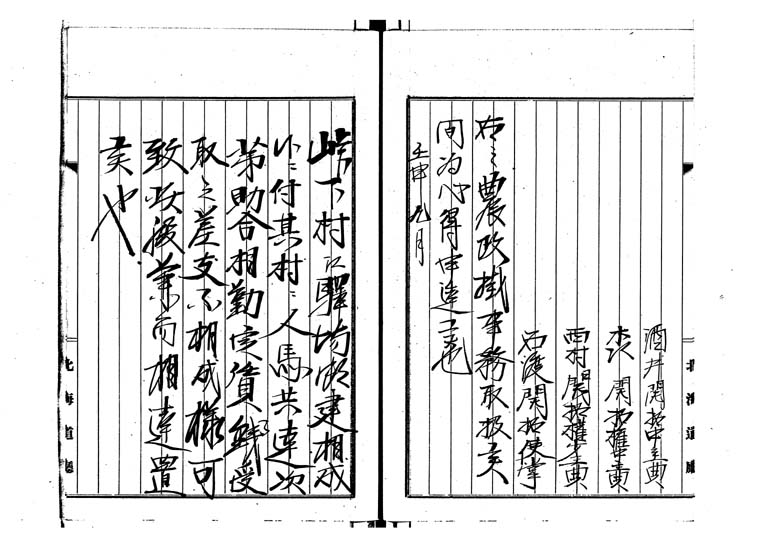 酒井開拓中主典
開拓権中主典
西村開拓権少主典
石渡開拓使掌
右之農政掛事務取扱候
間為心得申達候也
壬申九月
峠下村江驛場取建相成
候ニ付其村々人馬共遠次
第助合相勤定賃錢受
取之差支不相成様可
致此段兼而相達置
候也
北海道廳
北海道廳